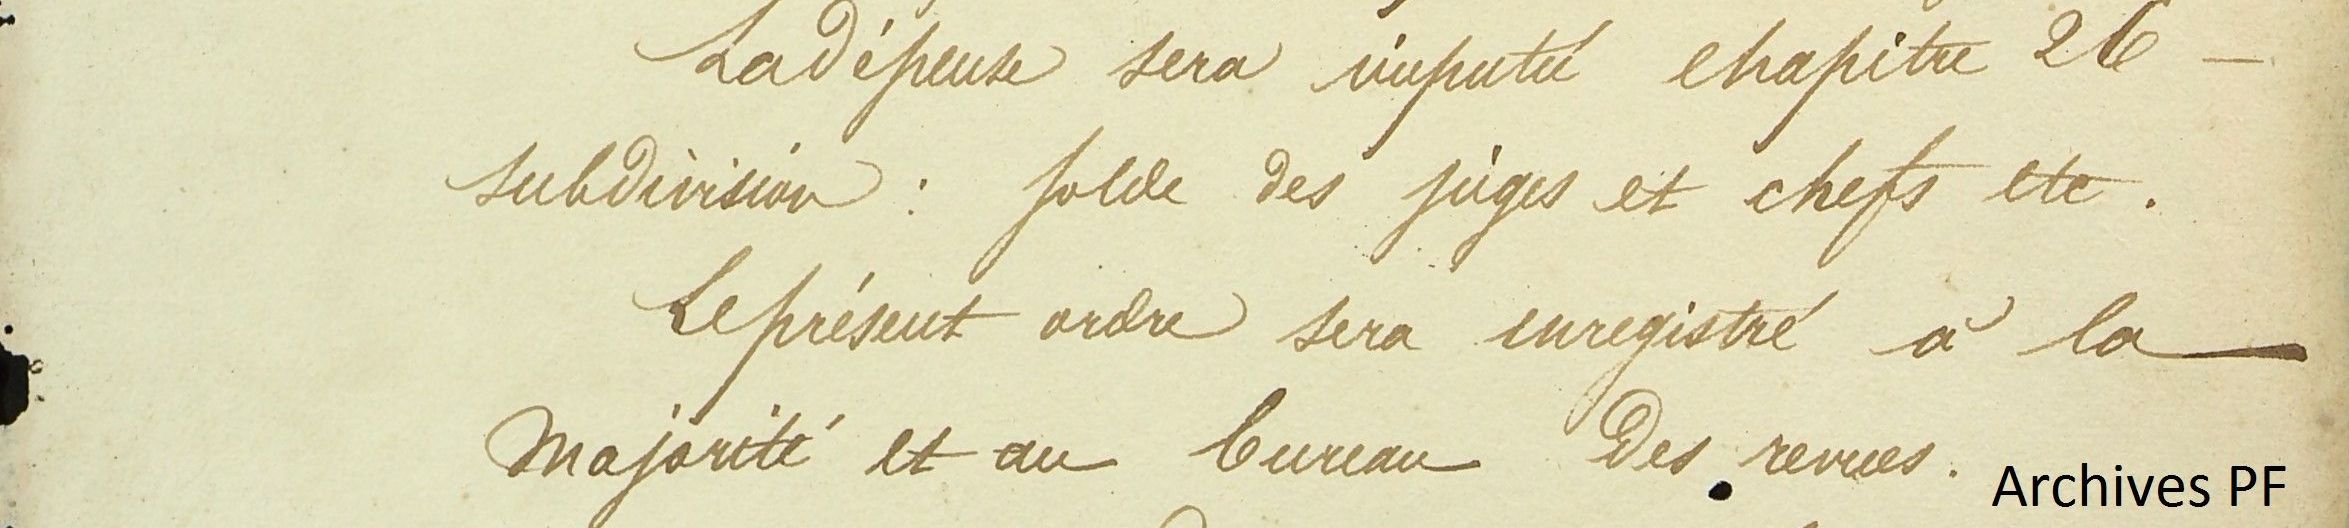 La dépense sera imputé chapitre 26 —
subdivision : solde des juges et chefs etc.
Le présent ordre sera enregistré à la
Majorité et au bureau des revues.
Archives PF